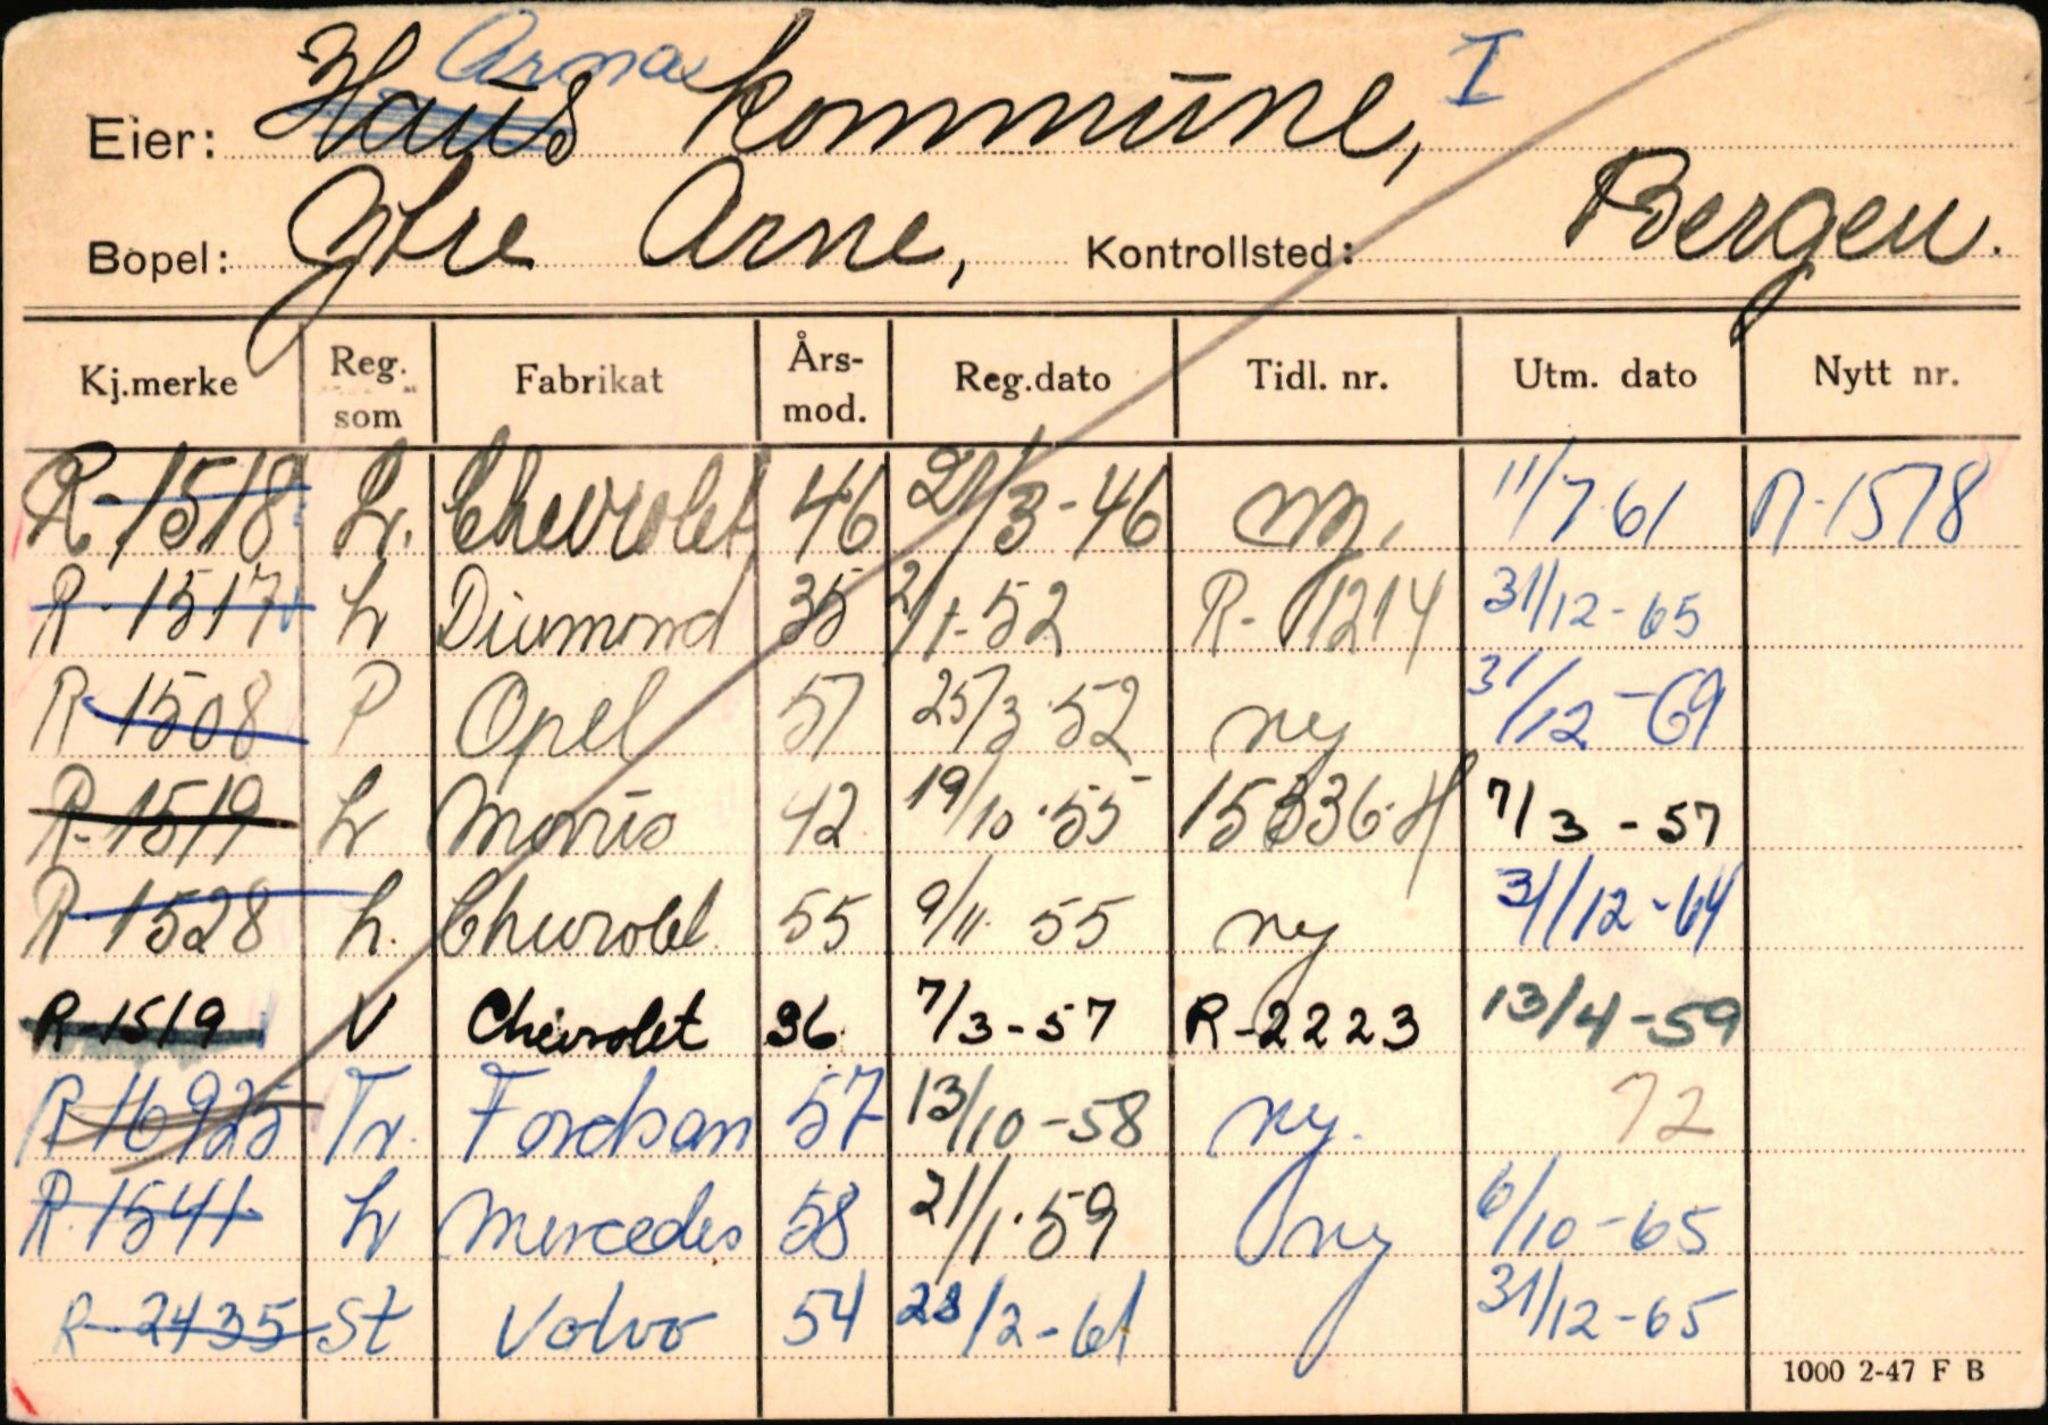 Arna I
Eier: Haus Kommune,
Bopel: Ytre Arne, Kontrollsted: Bergen.
Kj.merke Reg. som Fabrikat Års-mod. Reg.dato Tidl. nr. Utm. dato Nytt nr.
R-1518 L. Chevrolet 46 21/3-46 ny. 11/7-61 R-1578
R-1517 L Diamond 35 2/1-52 R-11214 31/12-65
R-1508 P Opel 51 25/3-52 ny 31/12-69
R-1519 L Morris 42 19/10-55 15336-H 7/3-57
R-1528 L. Chevrolet 55 9/11-55 ny 31/12-64
R-1519 V Chevrolet 36 7/3-57 R-2223 13/4-59
R-16925 Tr. Fordson 57 13/10-58 ny. 72
R-1541 L Mercedes 58 21/1-59 ny 6/10-65
R-2435 St Volvo 54 28/2-61 31/12-65
1000 2-47 F B